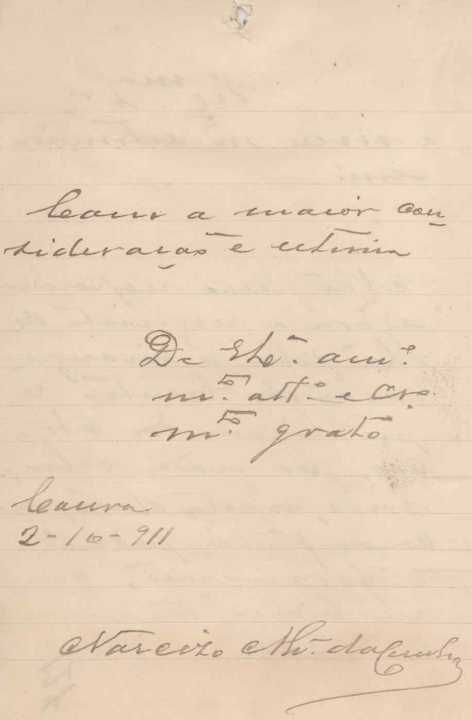 Com a maior con-
sideração e estima
De V. Ex.ª am.º
m.to att.º e Cr.º
m.to grato
Coura
2-10-911
Narcizo Alz. da Cunha